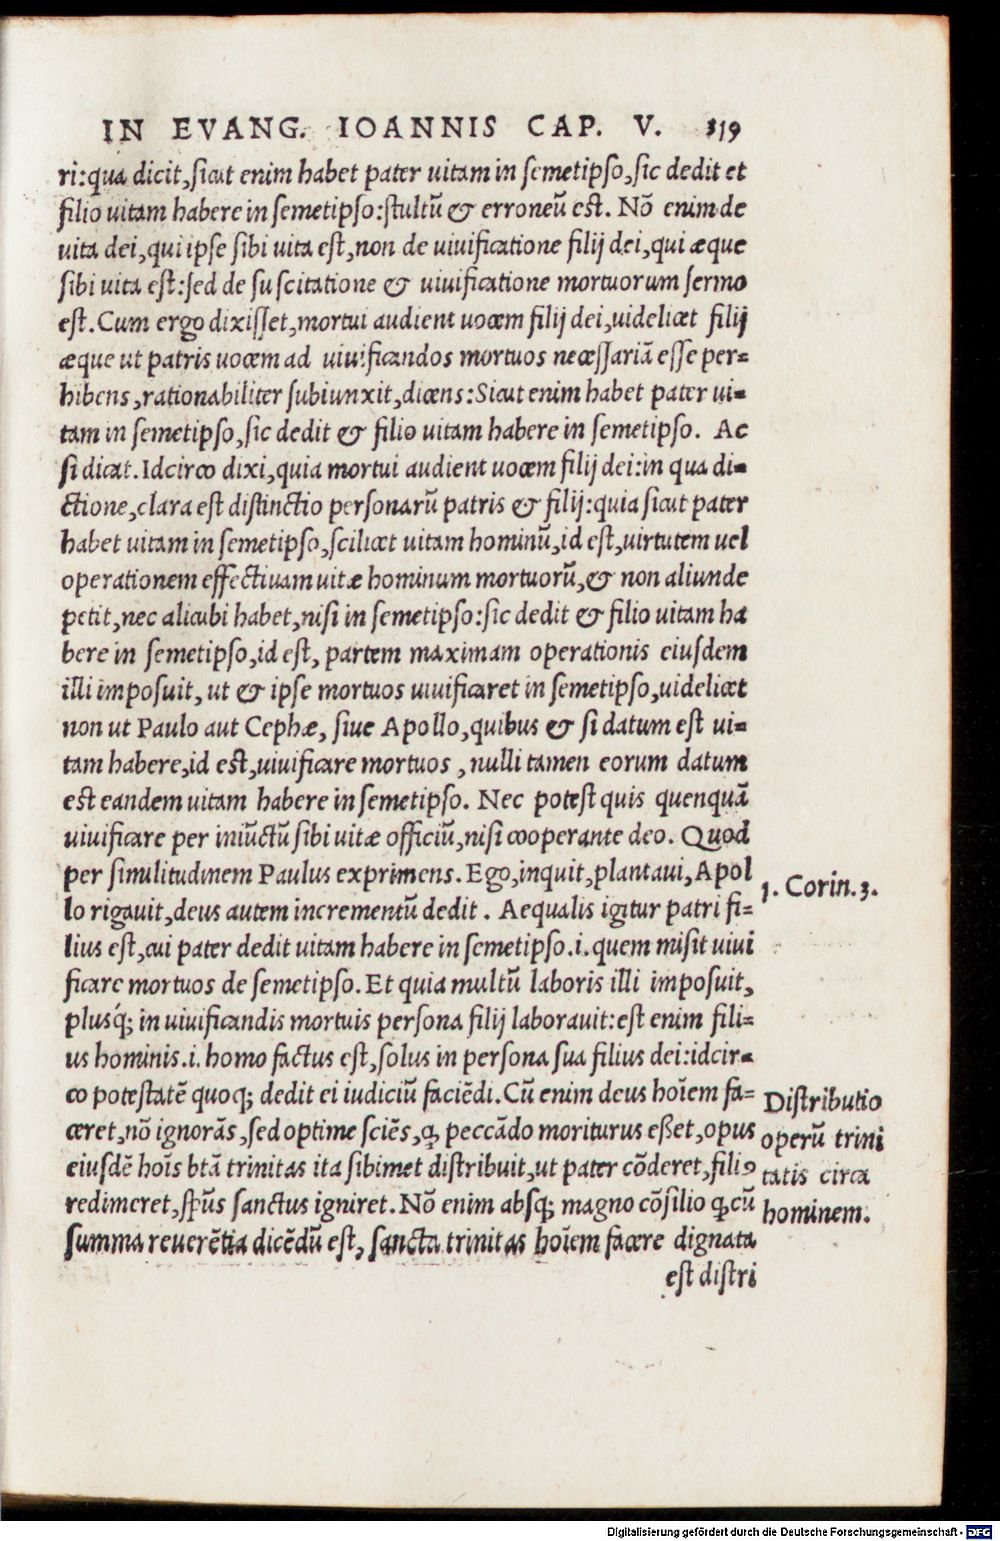 IN EVANG. IOANNIS CAP. V. 319
ri:qua dicit,sicut enim habet pater uitam in semetipso,sic dedit et
filio uitam habere in semetipso:stultū & erroneū est. Nō enim de
uita dei,qui ipse sibi uita est,non de uiuificatione filij dei,qui æque
sibi uita est:sed de suscitatione & uiuificatione mortuorum sermo
est. Cum ergo dixisset,mortui audient uocem filij dei,uidelicet filij
æque ut patris uocem ad uiuificandos mortuos necessariā esse per=
hibens,rationabiliter subiunxit,dicens:Sicut enim habet pater ui=
tam in semetipso,sic dedit & filio uitam habere in semetipso. Ac
si dicat. Idcirco dixi,quia mortui audient uocem filij dei:in qua di=
ctione,clara est distinctio personarū patris & filij:quia sicut pater
habet uitam in semetipso,scilicet uitam hominū,id est,uirtutem uel
operationem effectiuam uitæ hominum mortuorū,& non aliunde
petit,nec alicubi habet,nisi in semetipso:sic dedit & filio uitam ha
bere in semetipso,id est, partem maximam operationis eiusdem
illi imposuit, ut & ipse mortuos uiuificaret in semetipso,uidelicet
non ut Paulo aut Cephæ, siue Apollo,quibus & si datum est ui=
tam habere,id est,uiuificare mortuos , nulli tamen eorum datum
est eandem uitam habere in semetipso. Nec potest quis quenquā
uiuificare per iniūctū sibi uitæ officiū,nisi cooperante deo. Quod
per similitudinem Paulus exprimens. Ego,inquit,plantaui,Apol
1. Corin.3.
lo rigauit,deus autem incrementū dedit . Aequalis igitur patri fi=
lius est,cui pater dedit uitam habere in semetipso.i.quem misit uiui
ficare mortuos de semetipso. Et quia multū laboris illi imposuit,
plusq́; in uiuificandis mortuis persona filij laborauit:est enim fili=
us hominis.i. homo factus est,solus in persona sua filius dei:idcir=
co potestatē quoq; dedit ei iudiciū faciēdi. Cū enim deus hoīem fa=
ceret,nō ignorās,sed optime sciēs,ꝙ peccādo moriturus eßet,opus
eiusdē hoīs btā trinitas ita sibimet distribuit,ut pater cōderet,filiꝰ
redimeret,sp̄us sanctus igniret. Nō enim absq; magno cōsilio ꝙ cū
summa reuerētia dicēdū est, sancta trinitas hoīem facere dignata
est distri
Distributio
operū trini
tatis circa
hominem.
Digitalisierung gefördert durch die Deutsche Forschungsgemeinschaft - DFG